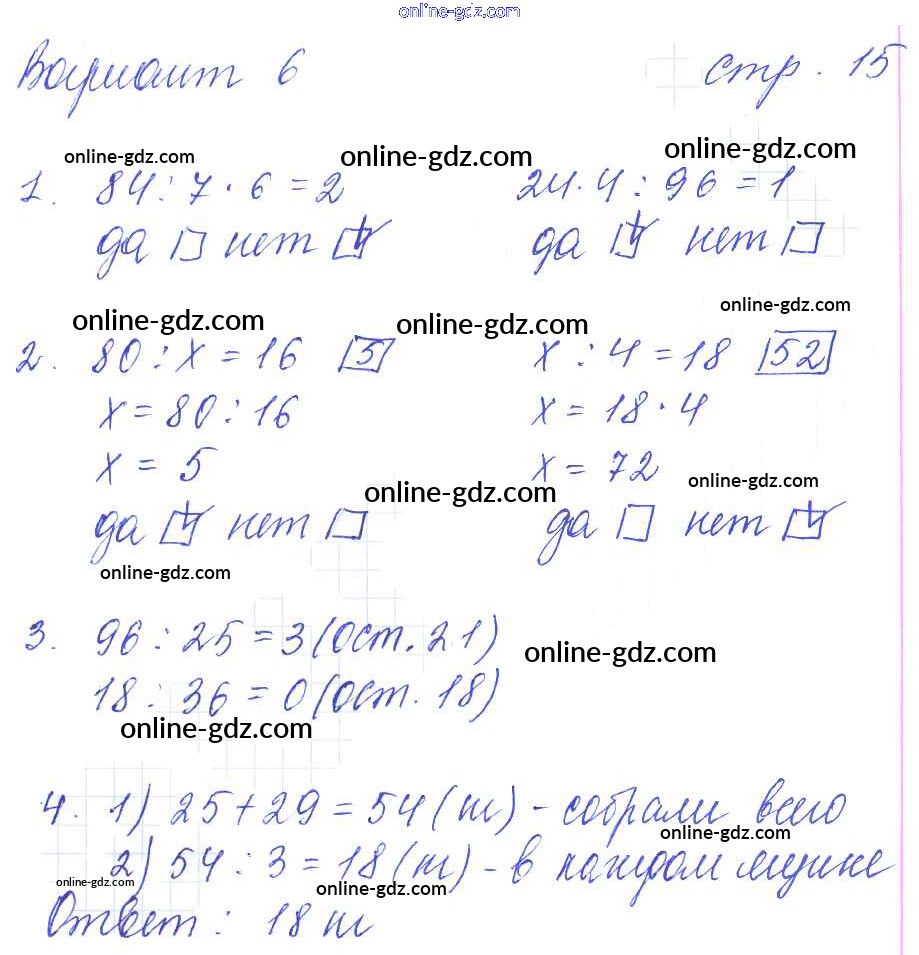 online-gdz.com
Вариант 6 стр. 15
online-gdz.com online-gdz.com online-gdz.com
1. 84 : 7 · 6 = 2 24 · 4 : 96 = 1
да □ нет ☑ да ☑ нет □
online-gdz.com online-gdz.com online-gdz.com
2. 80 : x = 16 [5] x : 4 = 18 [52]
x = 80 : 16 x = 18 · 4
x = 5 x = 72
online-gdz.com online-gdz.com
да ☑ нет □ да □ нет ☑
online-gdz.com
3. 96 : 25 = 3 (ост. 21)
online-gdz.com
18 : 36 = 0 (ост. 18)
online-gdz.com
4. 1) 25 + 29 = 54 (т) - собрали всего
online-gdz.com
2) 54 : 3 = 18 (т) - в каждом ящике
online-gdz.com online-gdz.com
Ответ : 18 т